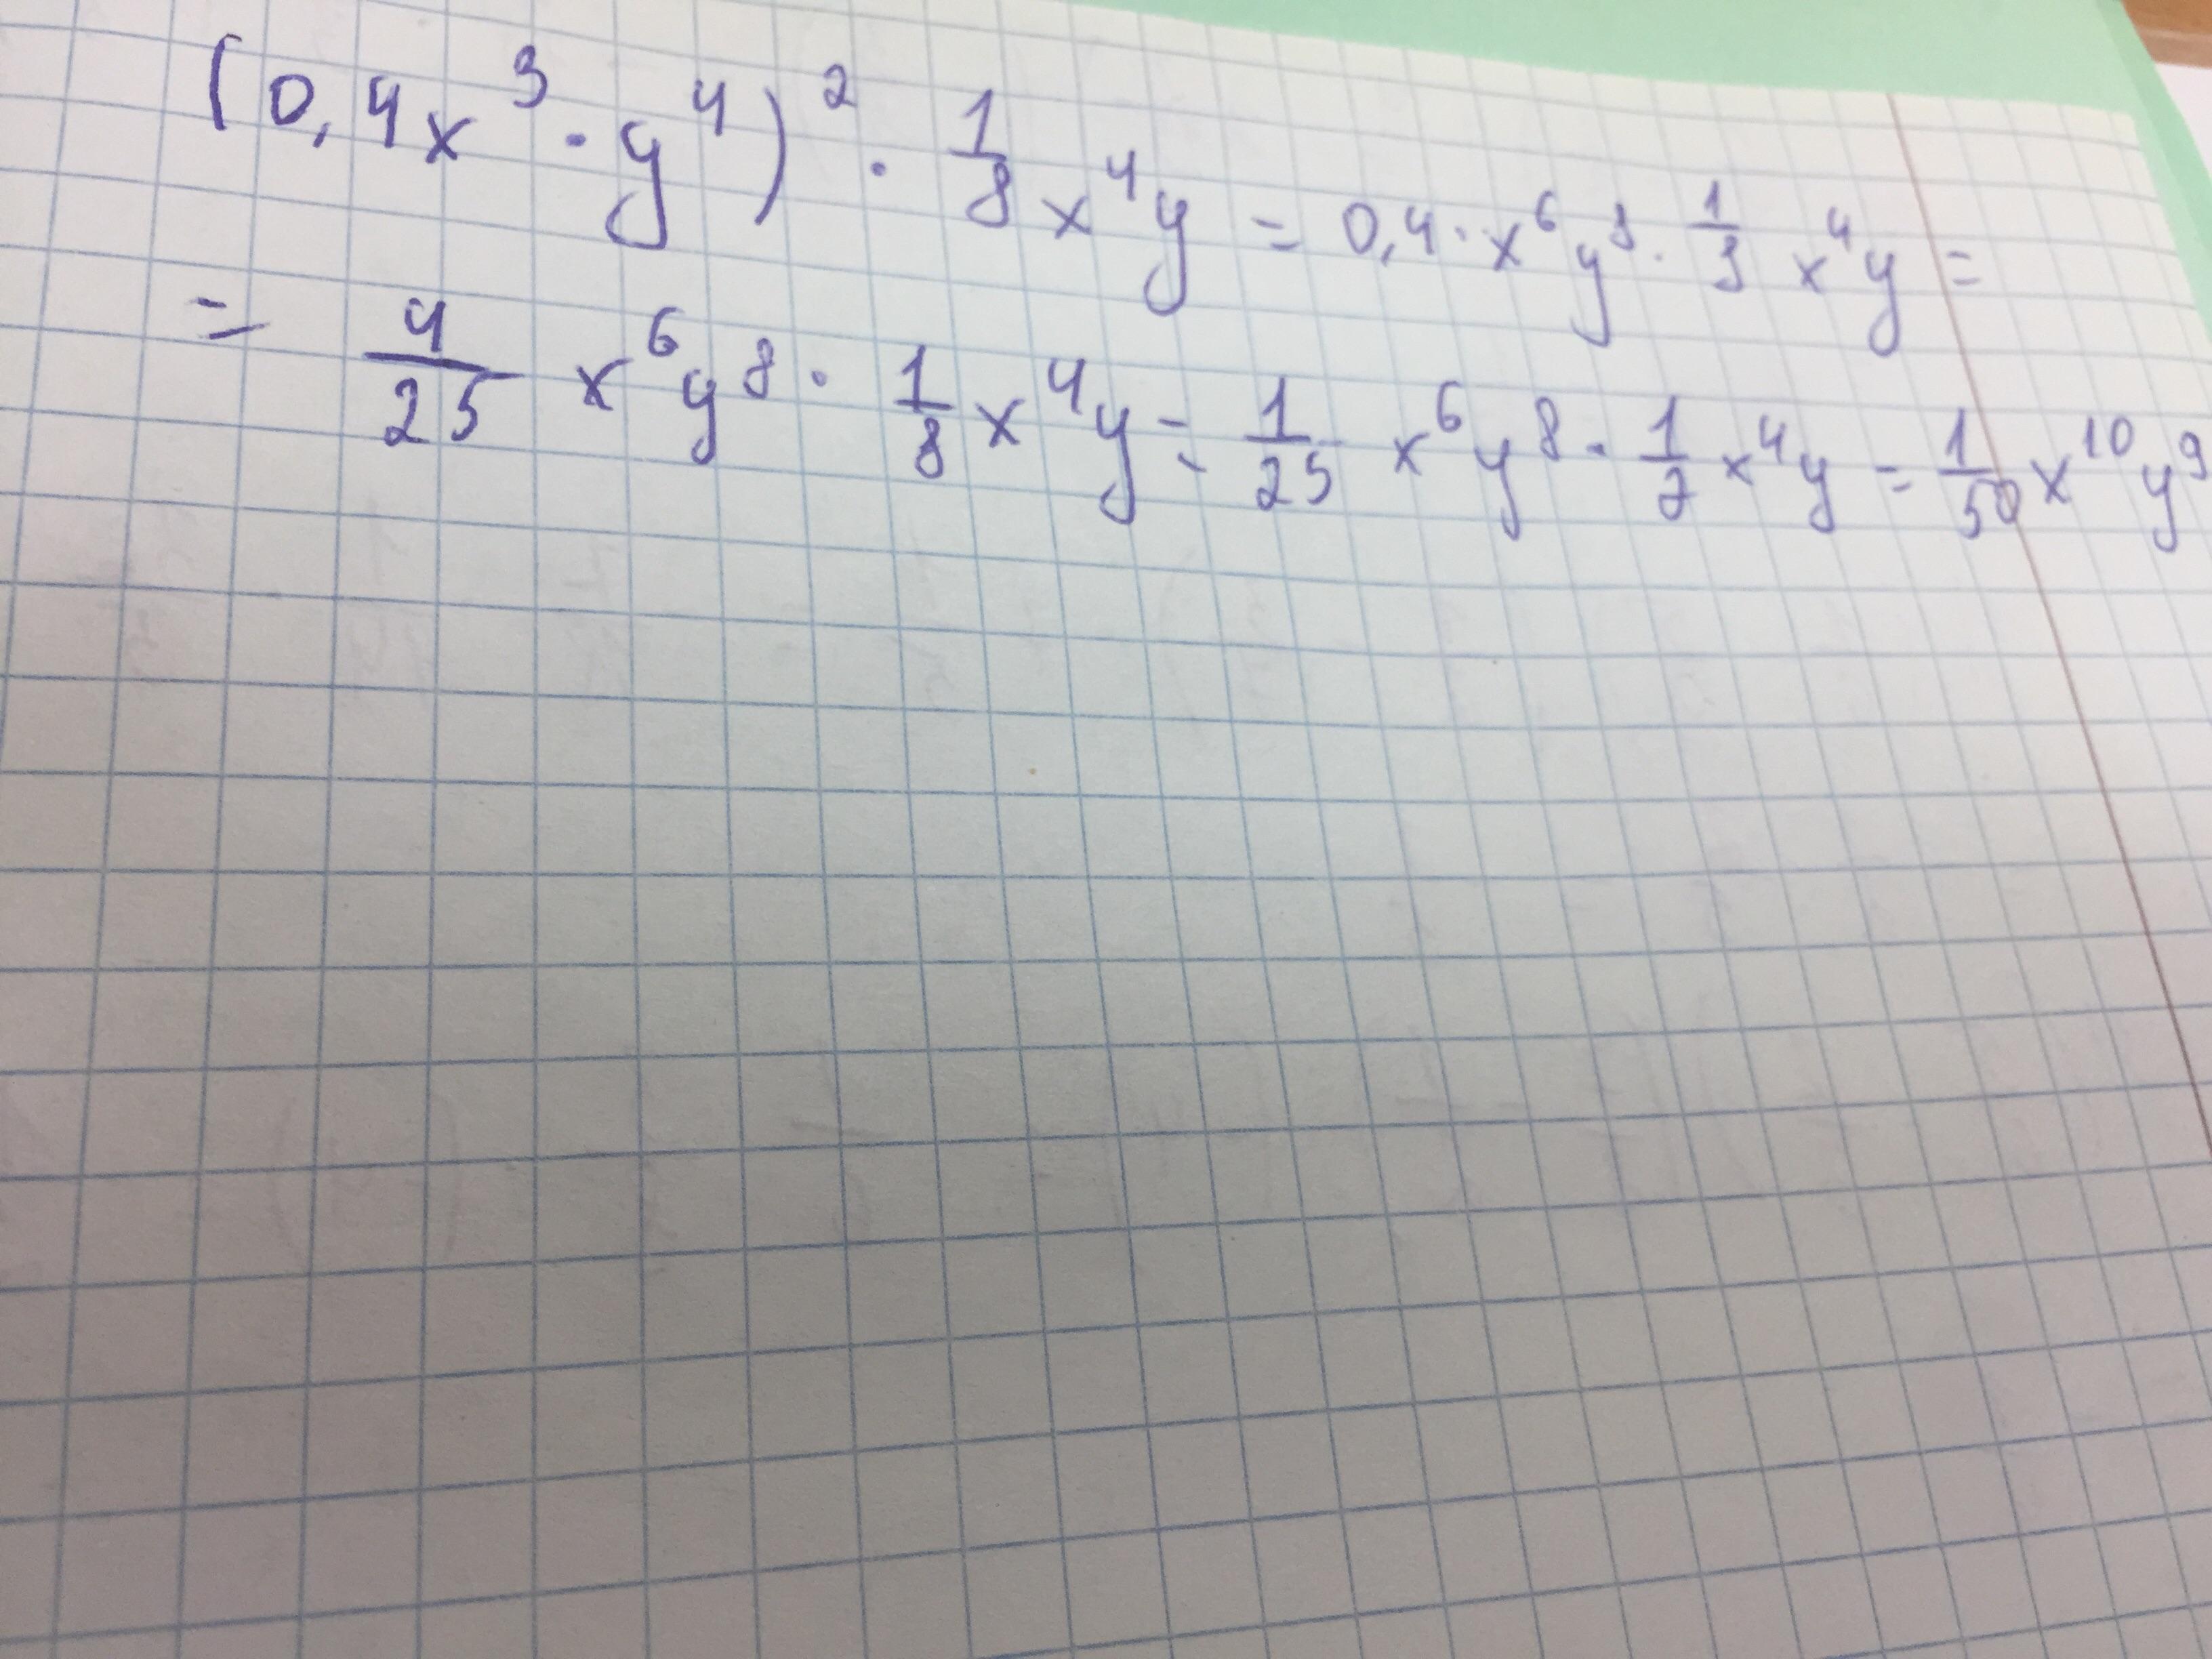 (0,4x³ · y⁴)² · 1/8 x⁴y = 0,4 · x⁶y⁸ · 1/8 x⁴y =
= 4/25 x⁶y⁸ · 1/8 x⁴y = 1/25 x⁶y⁸ · 1/2 x⁴y = 1/50 x¹⁰y⁹